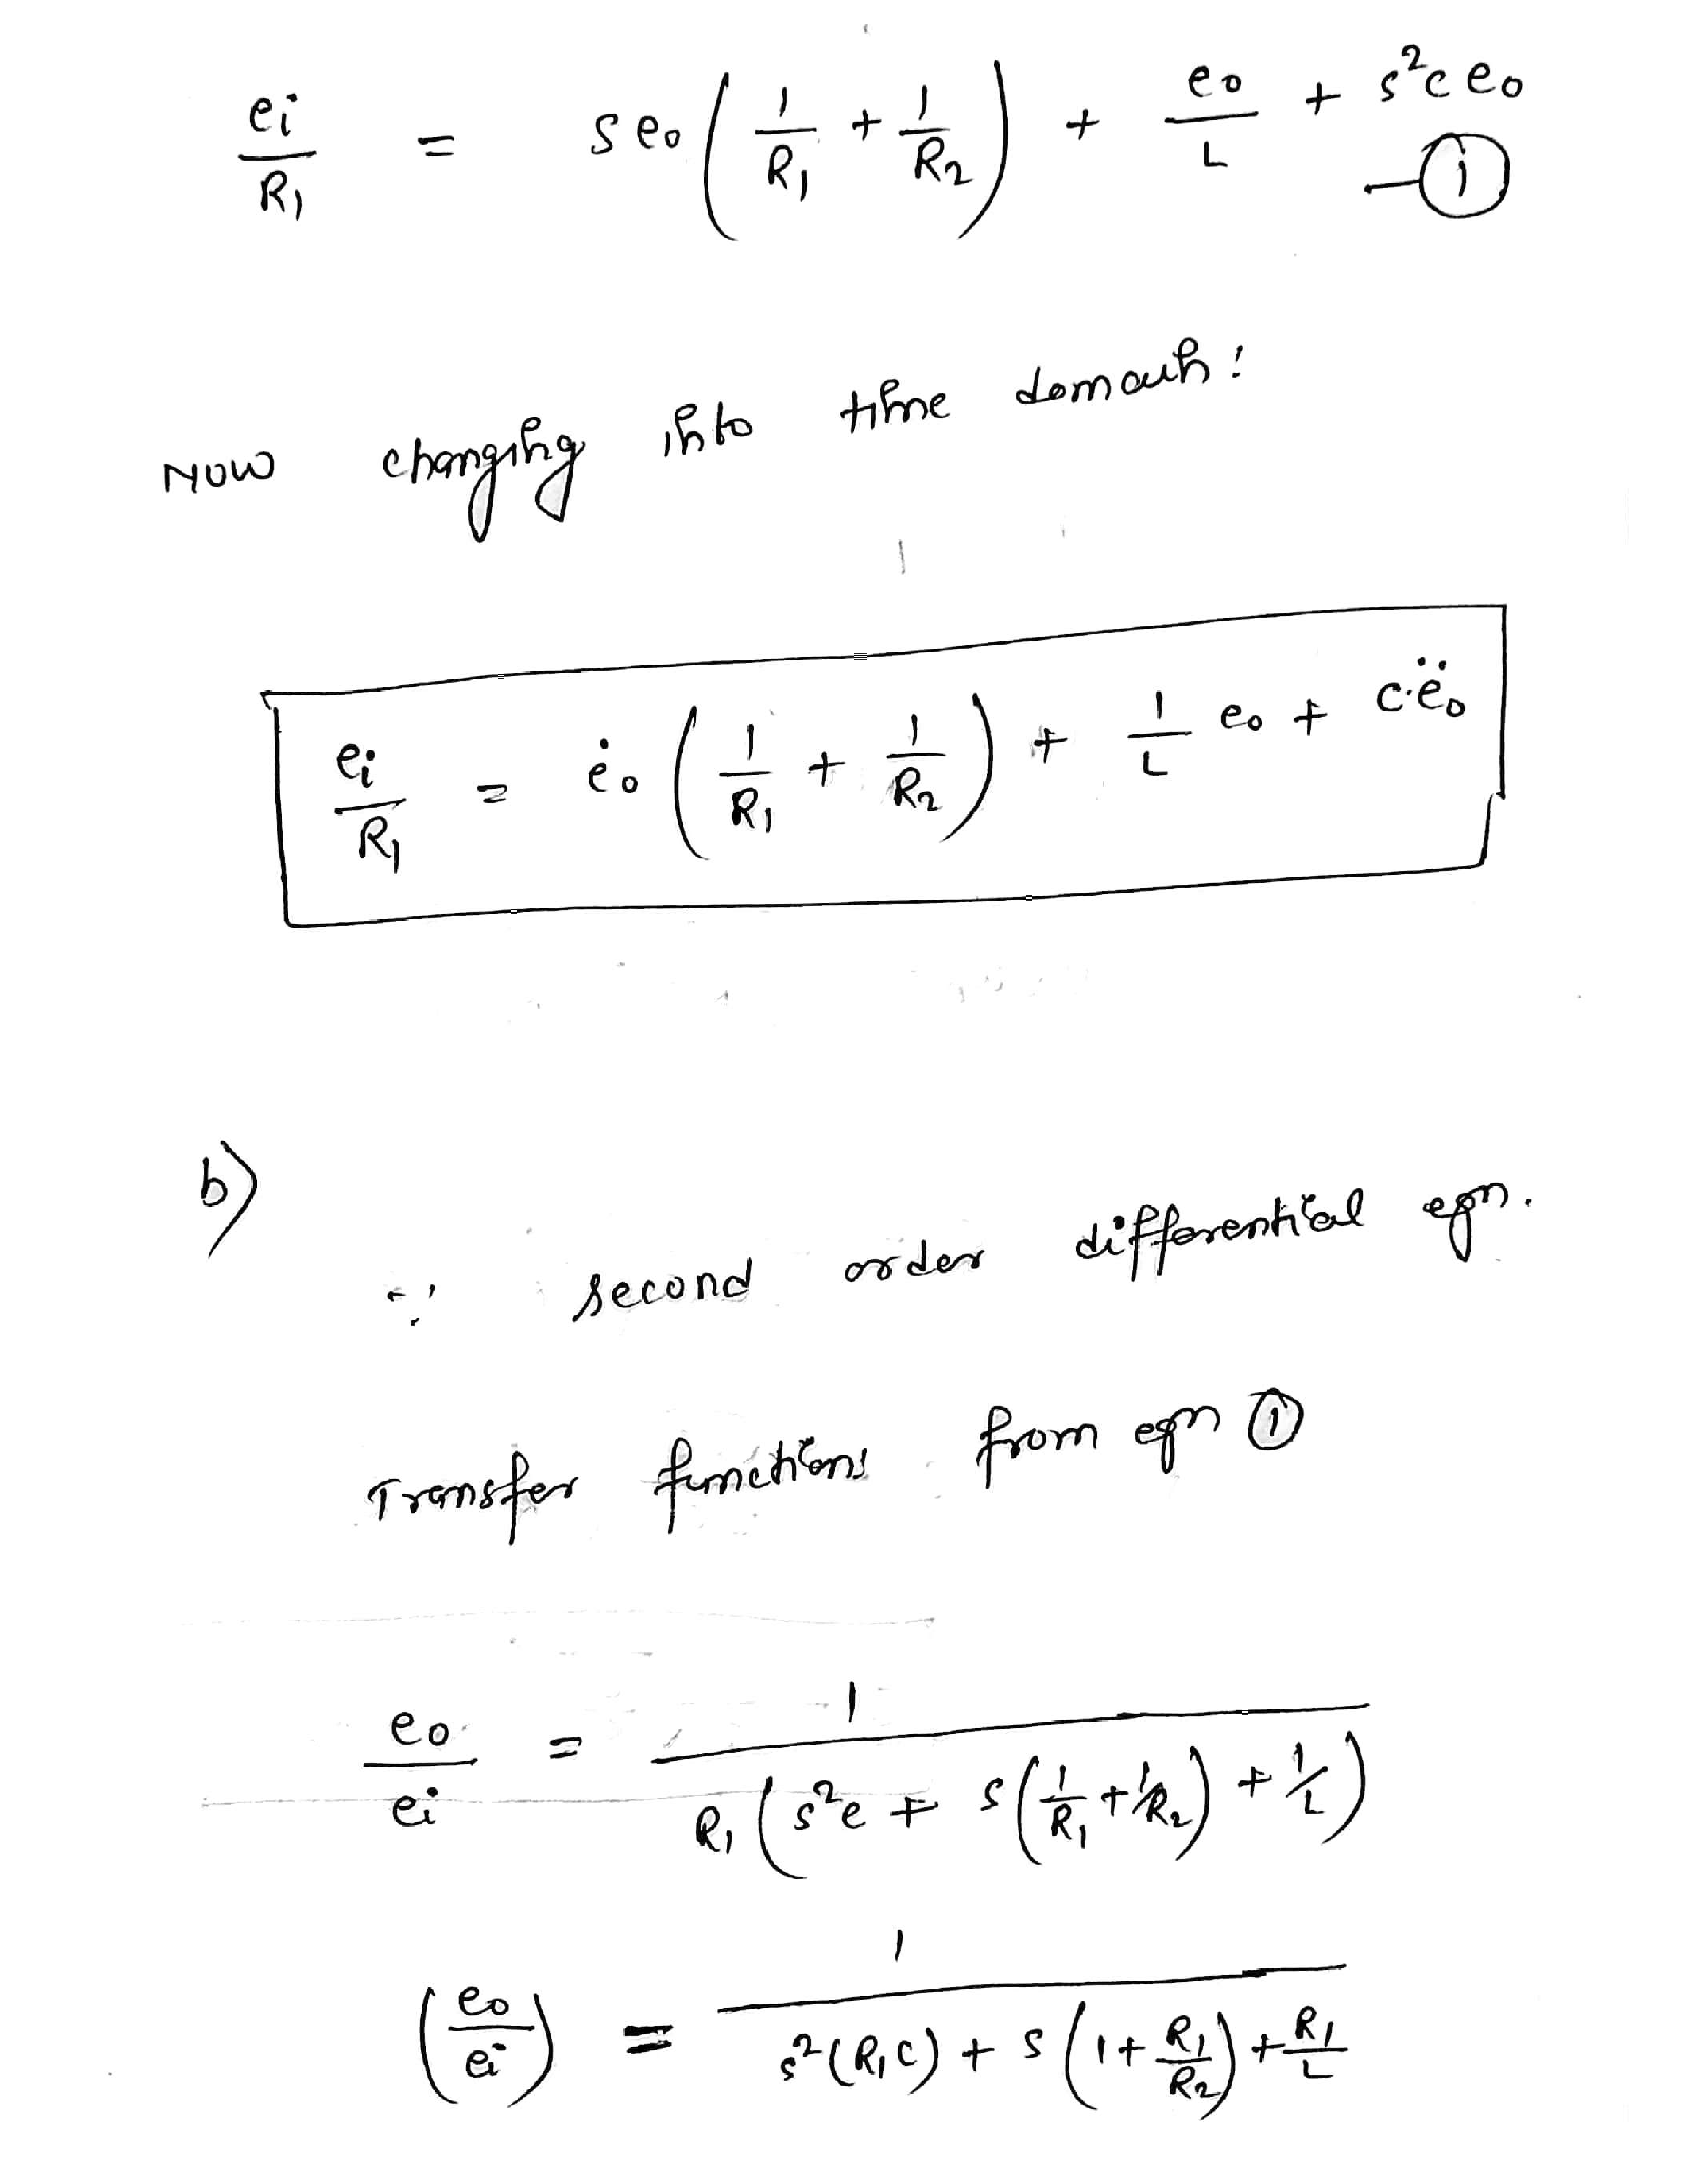 ei/R1 = s eo (1/R1 + 1/R2) + eo/L + s²c eo —①
Now changing into time domain:
ei/R1 = ėo (1/R1 + 1/R2) + 1/L eo + c·ëo
b)
∵ second order differential eqn.
Transfer functions from eqn ①
eo/ei = 1/(R1 (s²c + s(1/R1 + 1/R2) + 1/L))
(eo/ei) = 1/(s²(R1C) + s(1 + R1/R2) + R1/L)